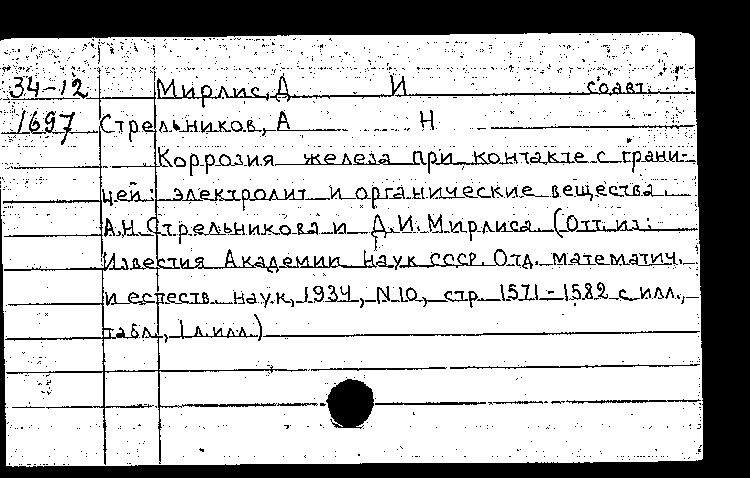 34-12 Мирлис, Д И соавт.
1697 Стрельников, А Н
Коррозия железа при контакте с грани-
цей: электролит и органические вещества.
А.Н. Стрельникова и Д.И. Мирлиса. (Отт. из:
Известия Академии наук СССР. Отд. математич.
и естеств. наук, 1934, N10, стр. 1571-1582 с илл.,
табл., 1 л. илл.)